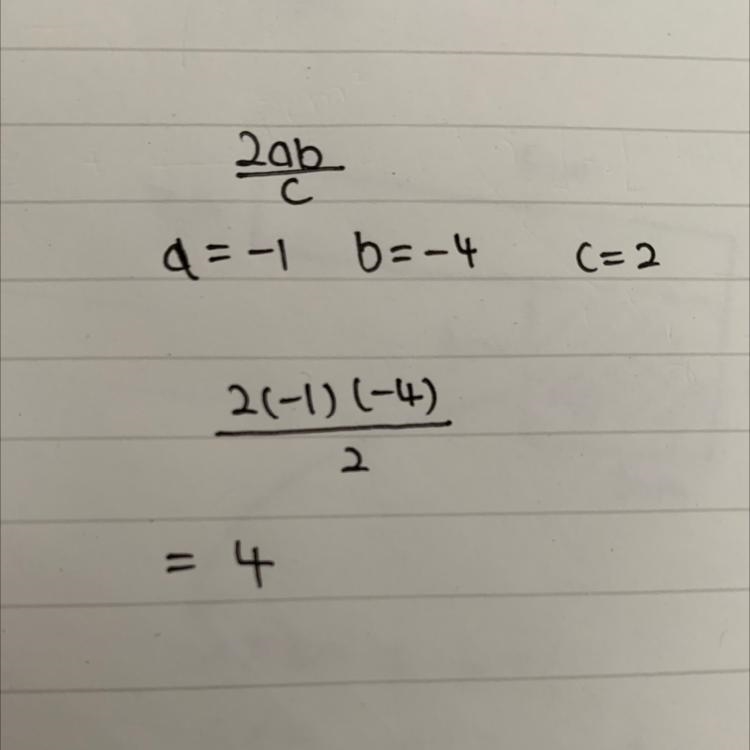 2ab
c
a = -1 b = -4 c = 2
2(-1)(-4)
2
= 4